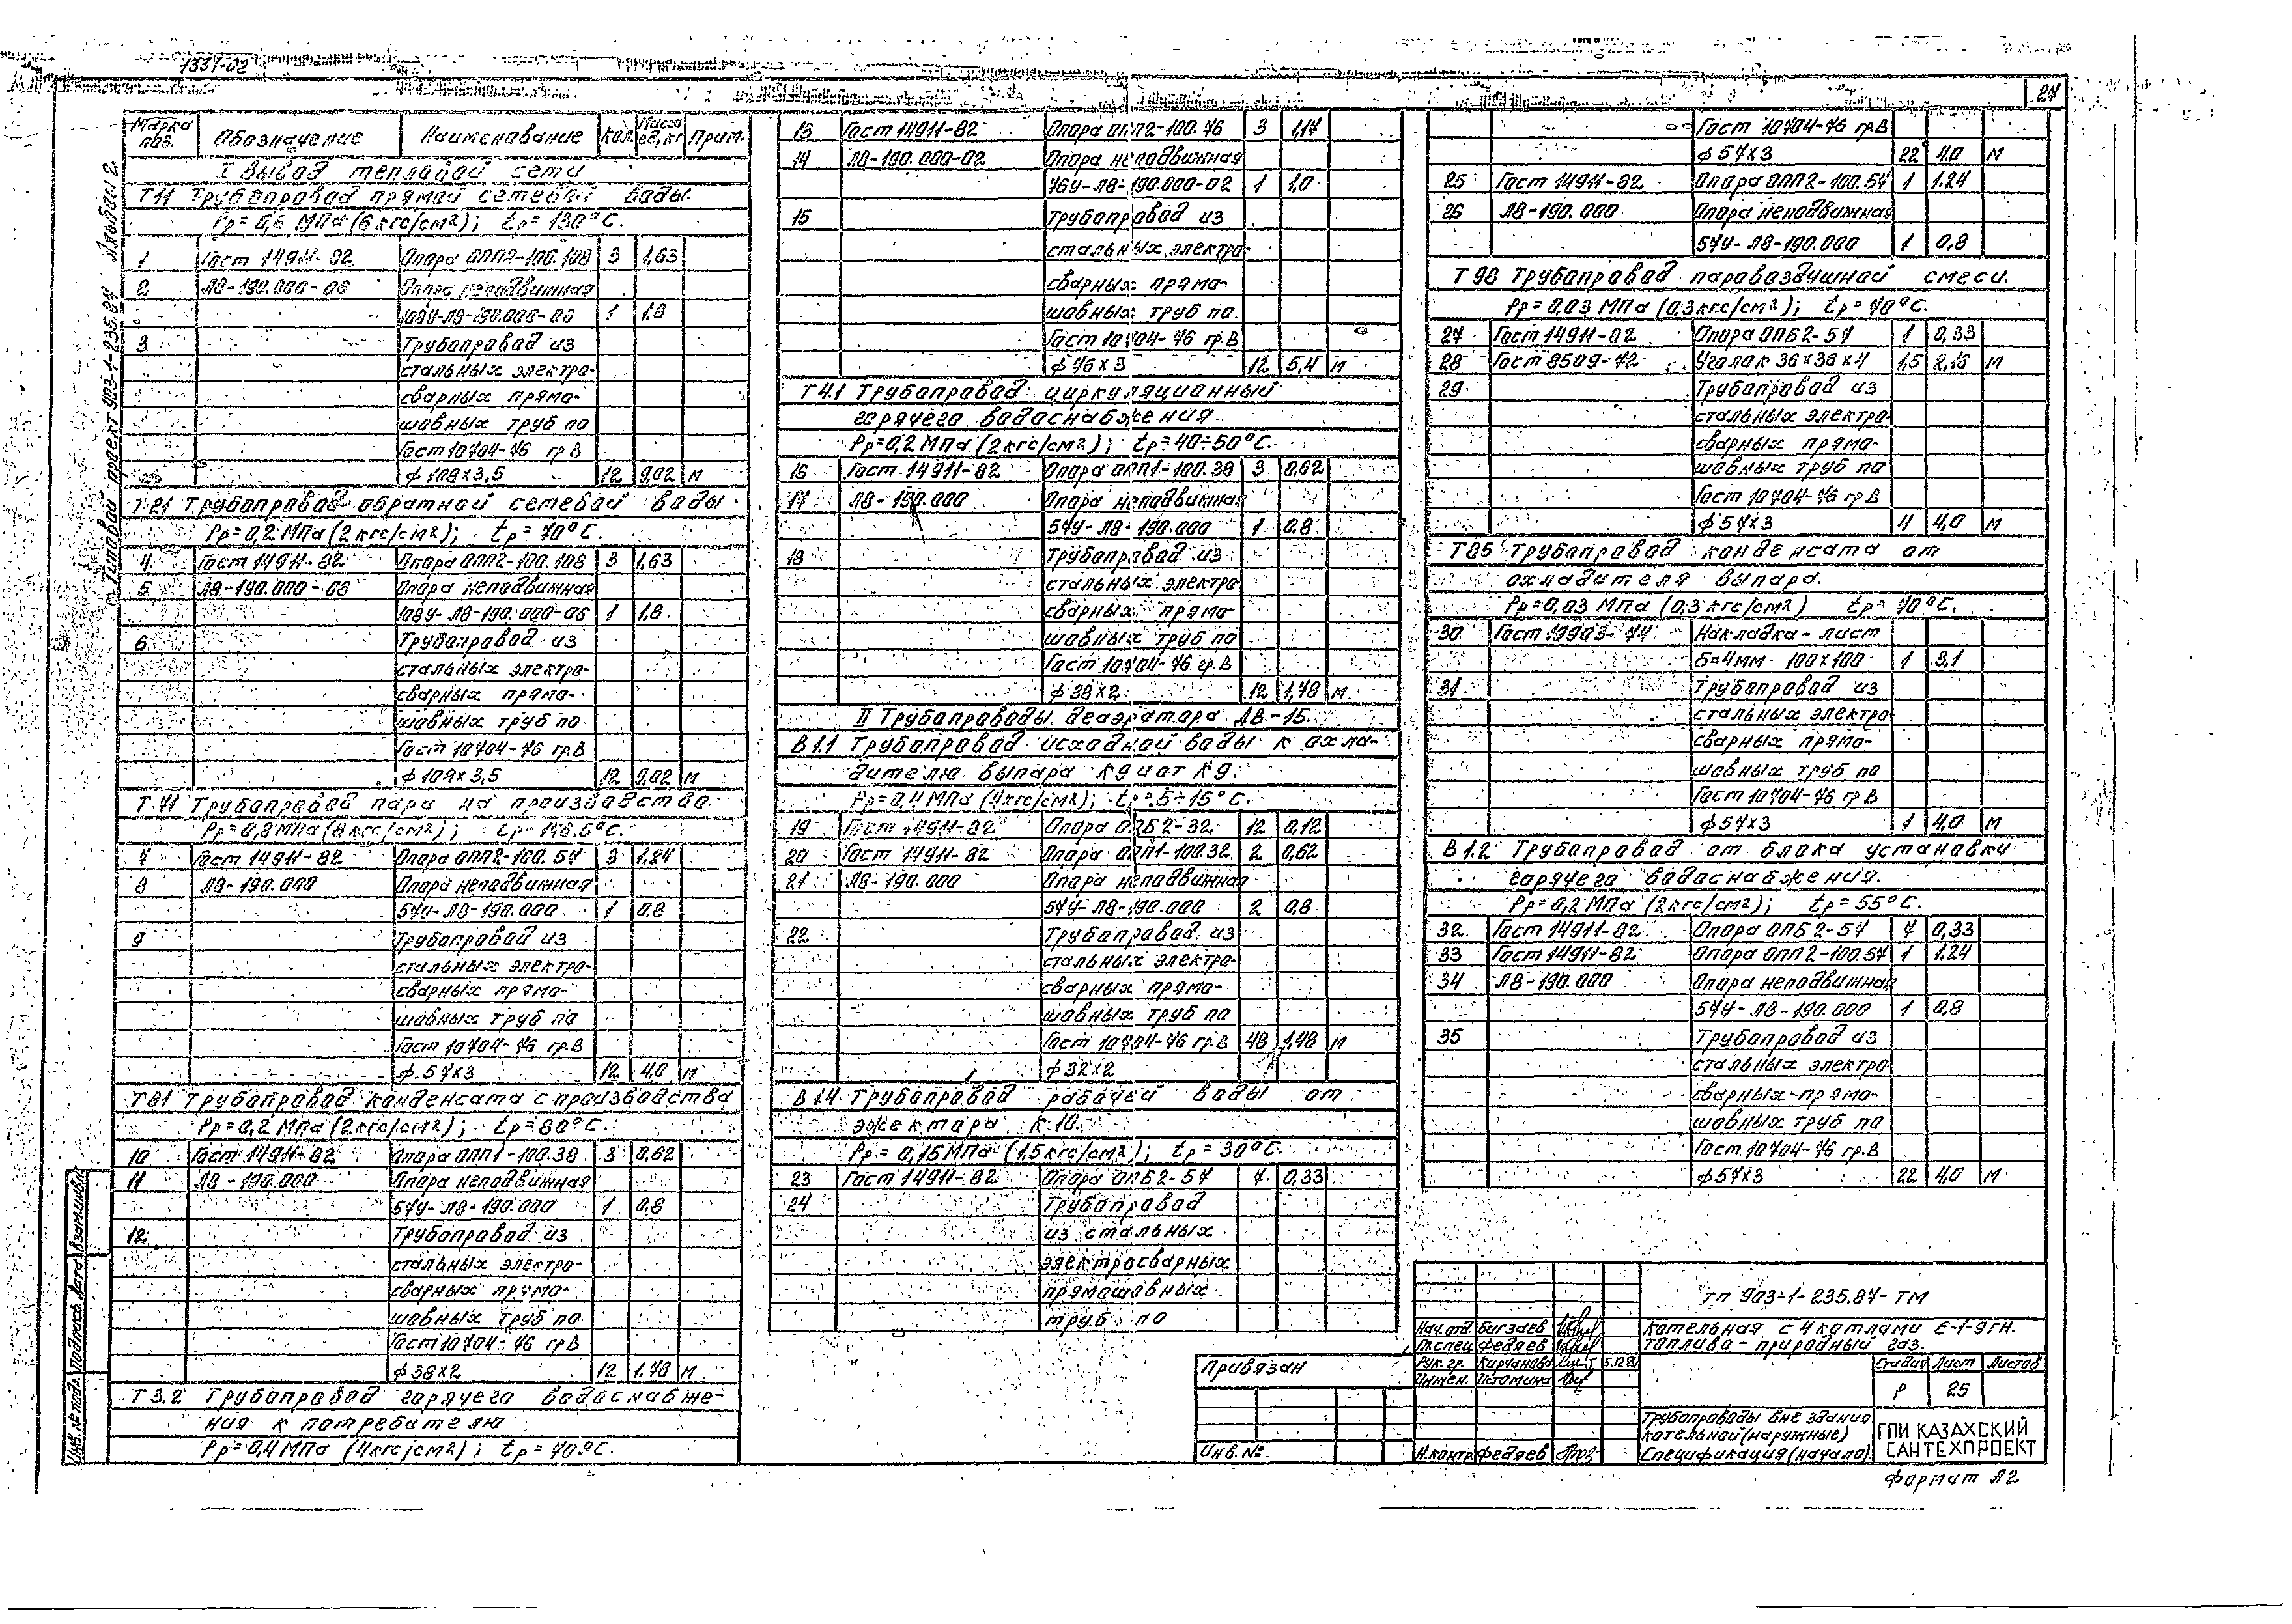 1331-02
27
Альбом 2.
Типовой проект 903-1-235.87
Марка поз. Обозначение Наименование Кол. Масса ед, кг Прим.
I Вывод тепловой сети
Т11 Трубопровод прямой сетевой воды.
Рр=0,6 МПа (6кгс/см²); tр=130°С.
1 Гост 14911-82 Опора ОПП2-100.108 3 1,63
2 Л8-190.000-06 Опора неподвижная
108У-Л8-190.000-06 1 1,8
3 Трубопровод из
стальных электро-
сварных прямо-
шовных труб по
Гост 10704-76 гр В
ф 108х3,5 12 9,02 м
Т21 Трубопровод обратной сетевой воды.
Рр=0,2 МПа (2кгс/см²); tр=70°С.
4 Гост 14911-82 Опора ОПП2-100.108 3 1,63
5 Л8-190.000-06 Опора неподвижная
108У-Л8-190.000-06 1 1,8
6 Трубопровод из
стальных электро-
сварных прямо-
шовных труб по
Гост 10704-76 гр.В
ф 108х3,5 12 9,02 м
Т71 Трубопровод пара на производство.
Рр=0,8 МПа (8кгс/см²); tр=176,5°С.
7 Гост 14911-82 Опора ОПП2-100.57 3 1,24
8 Л8-190.000 Опора неподвижная
57У-Л8-190.000 1 0,8
9 Трубопровод из
стальных электро-
сварных прямо-
шовных труб по
Гост 10704-76 гр.В
ф 57х3 12 4,0 м
Т81 Трубопровод конденсата с производства
Рр=0,2 МПа (2кгс/см²); tр=80°С.
10 Гост 14911-82 Опора ОПП1-100.38 3 0,62
11 Л8-190.000 Опора неподвижная
57У-Л8-190.000 1 0,8
12 Трубопровод из
стальных электро-
сварных прямо-
шовных труб по
Гост 10704-76 гр В
ф 38х2 12 1,78 м
Т 3.2 Трубопровод горячего водоснабже-
ния к потребителю
Рр=0,4 МПа (4кгс/см²); tр=70°С.
13 Гост 14911-82 Опора ОПП2-100.76 3 1,17
14 Л8-190.000-02 Опора неподвижная
76У-Л8-190.000-02 1 1,0
15 Трубопровод из
стальных электро-
сварных прямо-
шовных труб по
Гост 10704-76 гр.В
ф 76х3 12 5,4 м
Т4.1 Трубопровод циркуляционный
горячего водоснабжения
Рр=0,2 МПа (2кгс/см²); tр=40÷50°С.
16 Гост 14911-82 Опора ОПП1-100.38 3 0,62
17 Л8-190.000 Опора неподвижная
57У-Л8-190.000 1 0.8
18 Трубопровод из
стальных электро
сварных прямо-
шовных труб по
Гост 10704-76 гр.В
ф 38х2 12 1,78 м
II Трубопроводы деаэратора ДВ-15.
В1.1 Трубопровод исходной воды к охла-
дителю выпара К9 и от К9.
Рр=0,4 МПа (4кгс/см²); tр=5÷15°С.
19 Гост 14911-82 Опора ОПБ2-32 12 0,12
20 Гост 14911-82 Опора ОПП1-100.32 2 0,62
21 Л8-190.000 Опора неподвижная
57У-Л8-190.000 2 0,8
22 Трубопровод из
стальных электро-
сварных прямо-
шовных труб по
Гост 10704-76 гр.В 48 1,48 м
ф 32х2
В1.4 Трубопровод рабочей воды от
эжектора К10.
Рр=0,15МПа (1,5кгс/см²); tр=30°С.
23 Гост 14911-82 Опора ОПБ2-57 7 0,33
24 Трубопровод
из стальных
электросварных
прямошовных
труб по
Гост 10704-76 гр.В
ф 57х3 22 4,0 м
25 Гост 14911-82 Опора ОПП2-100.57 1 1.24
26 Л8-190.000 Опора неподвижная
57У-Л8-190.000 1 0,8
Т98 Трубопровод паровоздушной смеси.
Рр=0,03 МПа (0,3кгс/см²); tр=70°С.
27 Гост 14911-82 Опора ОПБ2-57 1 0,33
28 Гост 8509-72 Уголок 36х36х4 1,5 2,16 м
29 Трубопровод из
стальных электро-
сварных прямо-
шовных труб по
Гост 10704-76 гр В
ф 57х3 4 4,0 м
Т85 Трубопровод конденсата от
охладителя выпара.
Рр=0,03 МПа (0,3кгс/см²) tр=70°С.
30 Гост 19903-74 Накладка-лист
б=4мм 100х100 1 3,1
31 Трубопровод из
стальных электро
сварных прямо-
шовных труб по
Гост 10704-76 гр В
ф57х3 1 4,0 м
В1.2 Трубопровод от блока установки
горячего водоснабжения.
Рр=0,2 МПа (2кгс/см²); tр=55°С.
32. Гост 14911-82 Опора ОПБ2-57 7 0,33
33 Гост 14911-82 Опора ОПП2-100.57 1 1.24
34 Л8-190.000 Опора неподвижная
57У-Л8-190.000 1 0,8
35 Трубопровод из
стальных электро
сварных прямо-
шовных труб по
Гост 10704-76 гр.В
ф57х3 22 4,0 м
Привязан
Инв.№
тп 903-1-235.87-ТМ
Нач.отд. Бигзаев
Гл.спец Федяев
Рук. гр. Кирчанова 5.12.86
Инжен. Истомина
Н.контр Федяев
Котельная с 4 котлами Е-1-9ГН.
Топливо - природный газ.
Стадия Лист Листов
Р 25
Трубопроводы вне здания
котельной (наружные)
Спецификация (начало).
ГПИ КАЗАХСКИЙ
САНТЕХПРОЕКТ
Формат А2
Инв.№ подл. Подпись дата Взам.инв.№